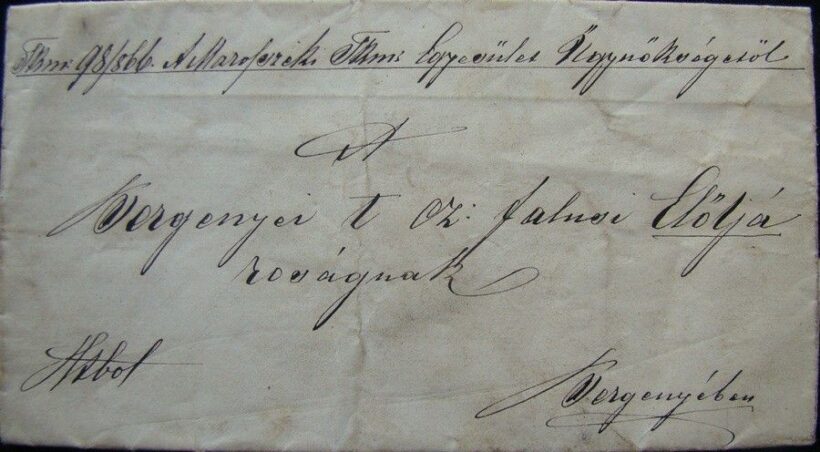 Tkm: 98/866. A Marosszéki Tkmi Egyesület Ügynökségétöl
A
Vergenyei t cz: falusi Előljá
roságnak
Hbol
Vergenyében